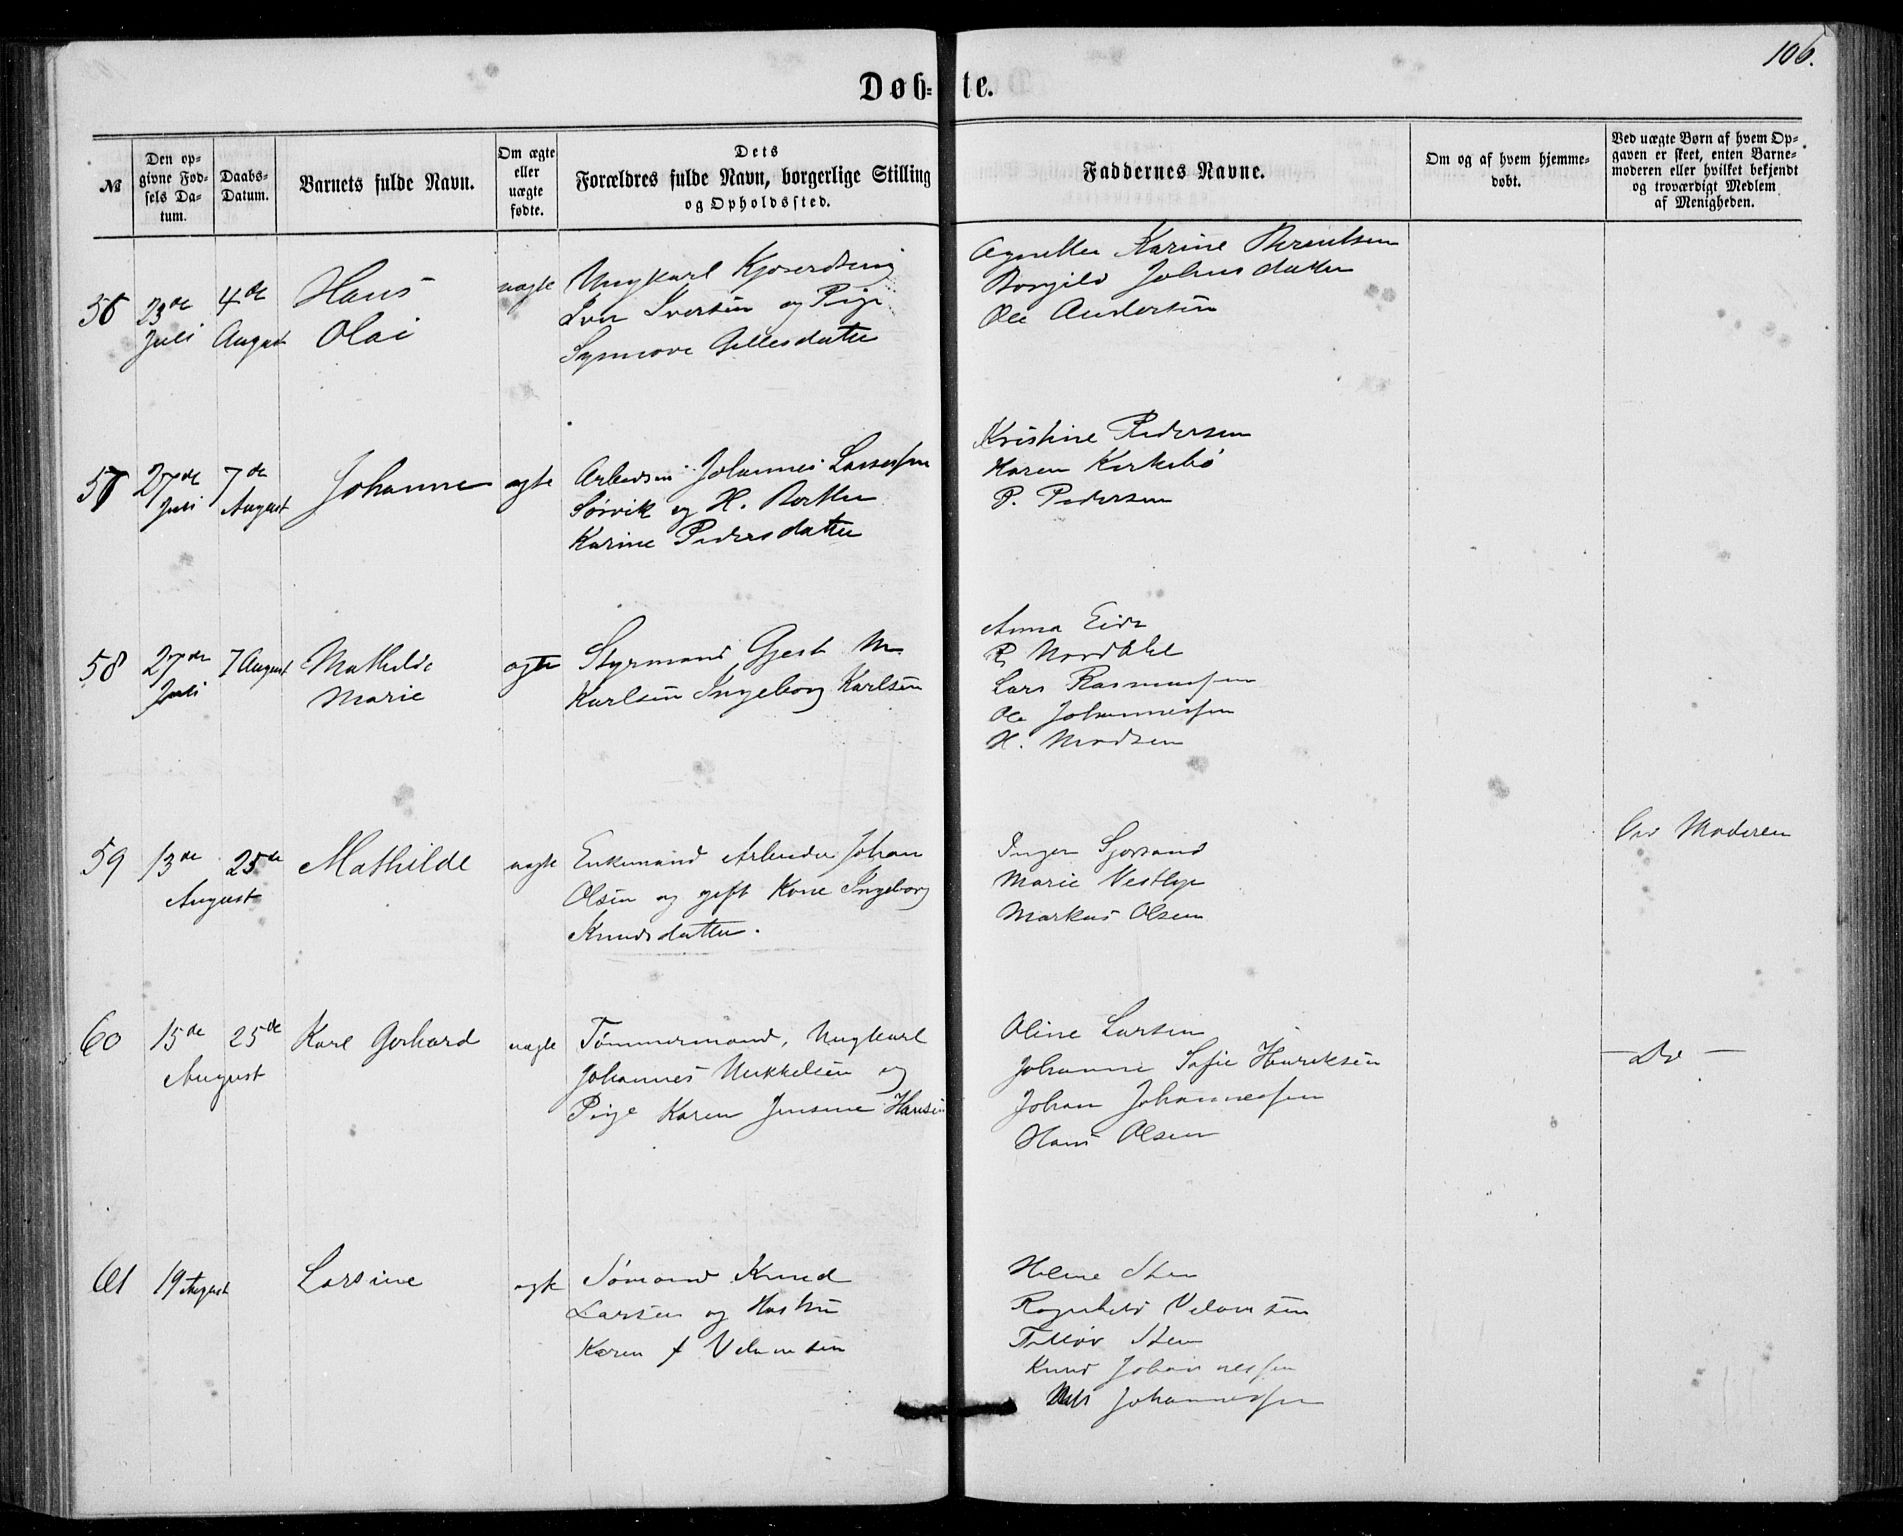 106.
Døb- te.
№
Den opgivne Fødsels Datum.
Daabs-Datum.
Barnets fulde Navn.
Om ægte eller uægte fødte.
Dets Forældres fulde Navn, borgerlige Stilling og Opholdssted.
Faddernes Navne.
Om og af hvem hjemmedøbt.
Ved uægte Børn af hvem Opgaven er skeet, enten Barnemoderen eller hvilket bekjendt og troværdigt Medlem af Menigheden.
56 23de Juli 4de August Hans Olai uægte
Ungkarl
Iver Iversen og Pige
Synnove Gullesdatter
Karine Berentsen
Borgild Johnsdatter
Ole Andersen
57 27de Juli 7de August Johanne ægte
Arbeidsm Johannes Larsen
Sørvik og H.
Karine Pedersdatter
Kristine Pedersen
Karen Kirkebø
P. Pedersen
58 27de Juli 7 August Mathilde Marie ægte
Styrmand Gjest M.
Karlsen Ingeborg Karlsen
Anna Eide
Lars Rasmussen
Ole Johannessen
H. Madsen
59 13de August 25de Mathilde uægte
Enkemand Arbeider Johan
Olsen og gift Kone Ingeborg
Knudsdatter.
Inger
Marie Vestbye
Markus Olsen
Moderen
60 15de August 25de Karl Gerhard uægte
Tømmermand, Ungkarl
Johannes Mikkelsen og
Pige Karen Jensine Hansen
Oline Larsen
Johanne Sofie Henriksen
Johan Johannessen
Hans Olsen
— Do —
61 19 August Larsine ægte
Sømand Knud
Larsen og Hustru
Karen f
Helene Sten
Ragnhild
Sten
Knud Johannessen
Nils Johannessen